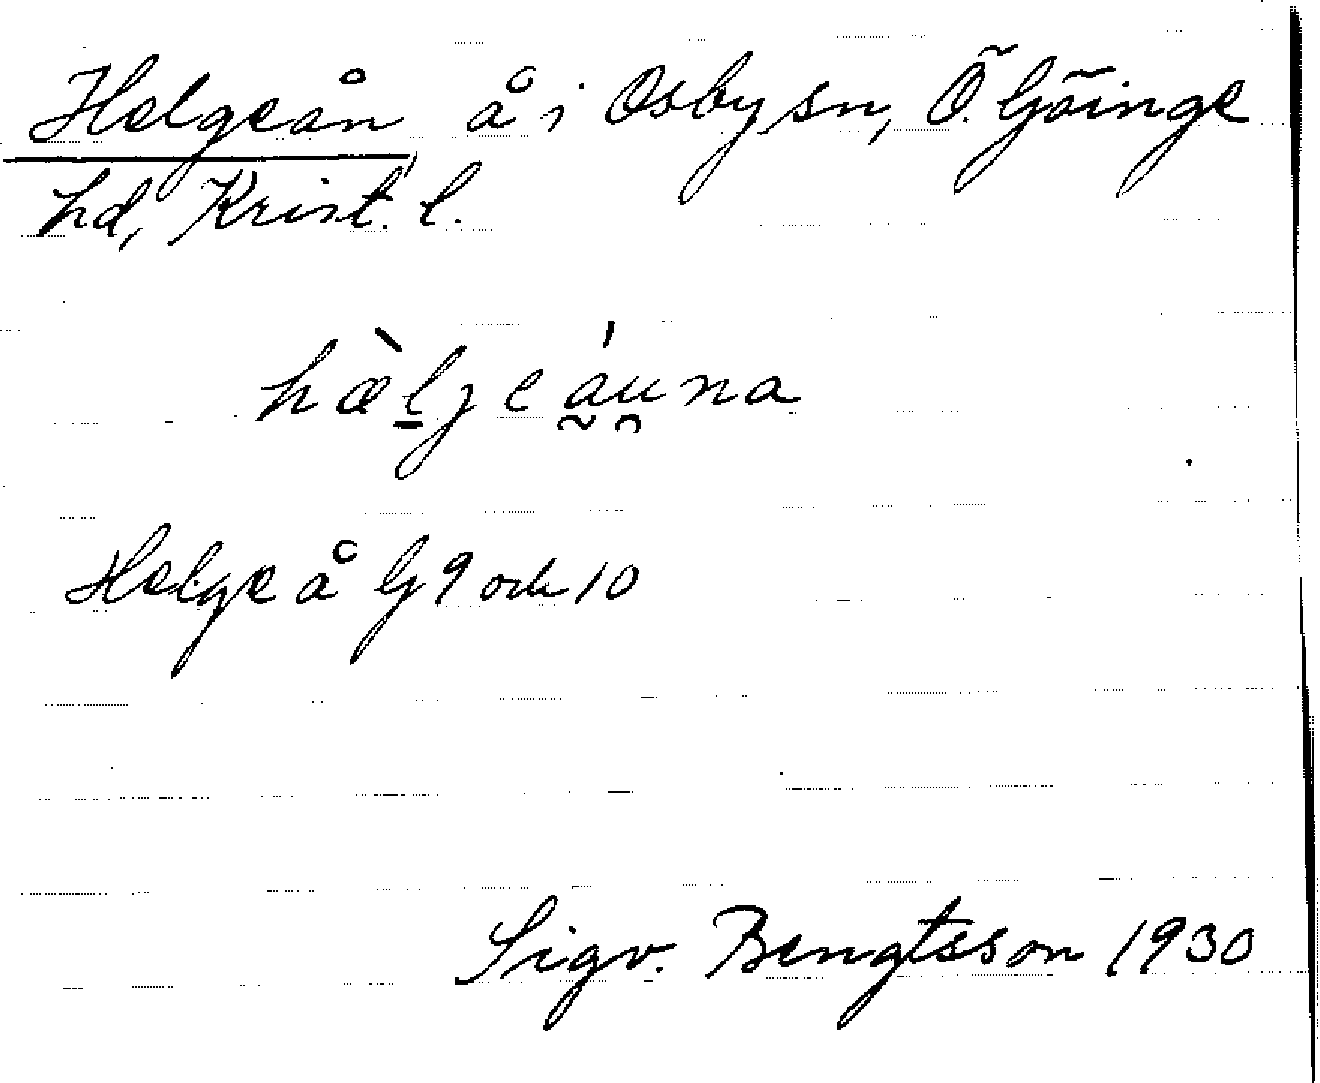 Helgeån å i Osby sn, Ö. Göinge
hd, Krist. l.
hæ̀l̠jeá̰u̯na
Helge å G 9 och 10
Sigv. Bengtsson 1930